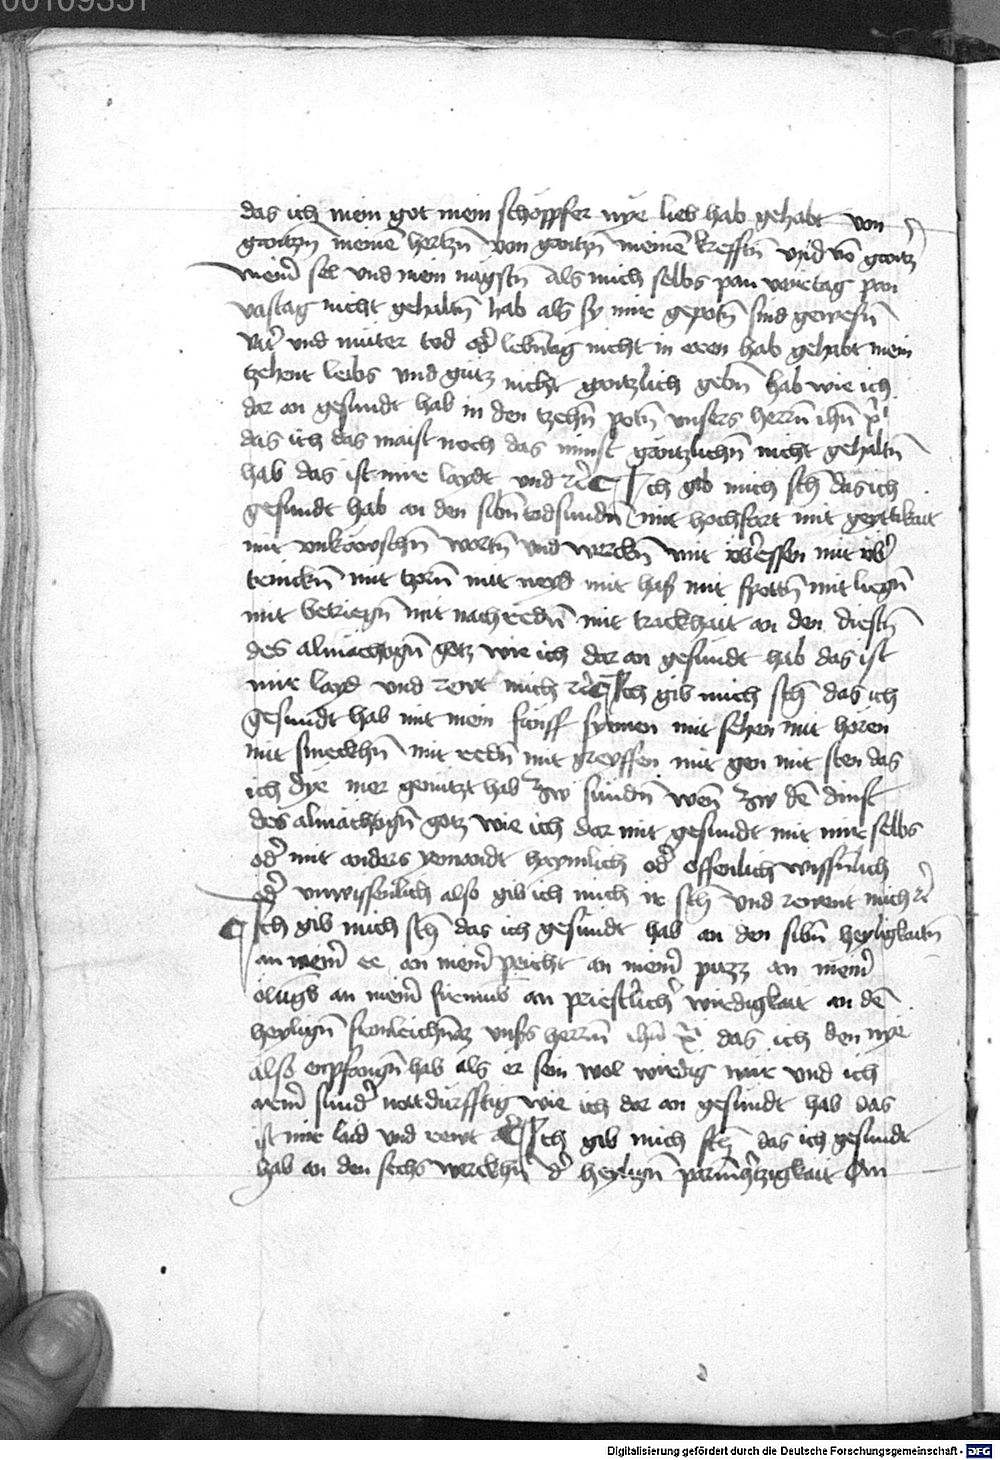 00109351
das ich mein got mein schöppfer nye lieb hab gehabt von
gantzn̄ meinē hertzn̄ von gantzn̄ meinē krefftn̄ vnd vō gantz͛
meinͤ sel vnd mein nägstn̄ als mich selbs pan veirtag pan
vastag nicht gehaltn̄ hab als sy mir gepotn̄ sind gewesn̄
vat͛ vnd muter tod od͛ lebn̄tag nicht in eren hab gehabt mein
tzehent leibs vnd gutz nicht gantzlich gebn̄ hab wie ich
dar an gesundt hab in den tzehn̄ potn̄ vnsers herrn̄ ihū xp̄i
das ich das maist noch das minst gantzlichn̄ nicht gehaltn̄
hab das ist mir laydt vnd rc̄ Ich gib mich sch̄ das ich
gesundt hab an den sibn̄ todsundn̄ mit hochfart mit geyttikait
mit vnkewschn̄ wortn̄ vnd werckn̄ mit vb͛essen mit vb͛
trinckn̄ mit tzorn̄ mit neyd mit haß mit spottn̄ mit liegn̄
mit betriegn̄ mit nachredn̄ mit trackhait an den dinstn̄
des almächtign̄ gotz wie ich dar an gesundt hab das ist
mir layd vnd rewt mich rc̄ Ich gib mich sch̄ das ich
gesundt hab mit mein fünff synnen mit sehen mit hören
mit smeckhn̄ mit redn̄ mit greyffen mit gen mit sten das
ich dye mer genützt hab zw sundn̄ wen̄ zw dē dinst
des almächtign̄ gotz wie ich dar mit gesundt mit mir selbs
od͛ mit anders yemandt haymlich od͛ offenlich wissn̄lich
od͛ vnwissenlich also gib ich mich ir sch̄ vnd rewent mich rc̄
Ich gib mich sch̄ das ich gesundt hab an den sibn̄ heyligkaitn̄
an mein͛ ee an mein͛ peicht an mein͛ puzz an mein͛
ölūg an mein͛ firmūg an priestͤlich͛ wirdigkait an dē
heylign̄ fronleichn̄az vnsers herrn̄ ihū xp̄i das ich den nye
also enpfangn̄ hab als er sein wol wirdig wär vnd ich
arem͛ sund͛ nottdürfftig wie ich dar an gesundt hab das
ist mir laid vnd rewt rc̄ Ich gib mich sch̄ das ich gesundt
hab an den sechs werckhn̄ d͛ heylign̄ parmh͛tzigkait Am
Digitalisierung gefördert durch die Deutsche Forschungsgemeinschaft - DFG